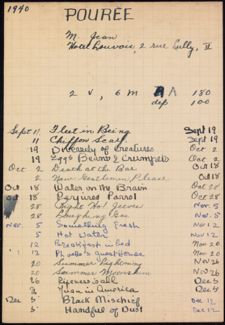 1940
POURÉE
M. Jean
Hotel Louvois, 2 rue Lully, II
2 v, 6 m A 180
dep 100
Sept 11 Fleet in Being Sept 19
11 Chiffon Scarf Sept 19
19 Diversity of Creatures Oct 2
19 Eggs Beans & Crumpets Oct 2
Oct 2 Death at the Bar Oct 18
2 New Gentlemen, Please Oct 18
Oct 18 Water on the Brain Oct 28
Oct 18 Perjured Parrot Oct 28
28 Right Ho Jeeves Nov 5
28 Laughing Gas Nov. 5
Nov. 5 Something Fresh Nov 12
5 Hot Water Nov 12
12 Breakfast in Bed Nov 20
12 Nov 20
20 Summer Lightning Nov 26
20 Summer Moonshine Nov 26
26 Dec 5
26 Yuan in America Dec 5
Dec 5 Black Mischief Dec 12
5 Handful of Dust Dec 12